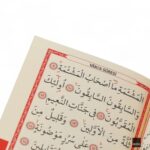 VÂKIA SÛRESİ
الْمَشْـَٔمَةِ مَٓا اَصْحَابُ الْمَشْـَٔمَةِ
وَالسَّابِقُونَ السَّابِقُونَ اُولٰٓئِكَ
الْمُقَرَّبُونَ فِي جَنَّاتِ النَّعِيمِ
مِنَ الْاَوَّلِينَ وَقَلِيلٌ مِنَ
عَلٰى سُرُرٍ مَوْضُونَةٍ